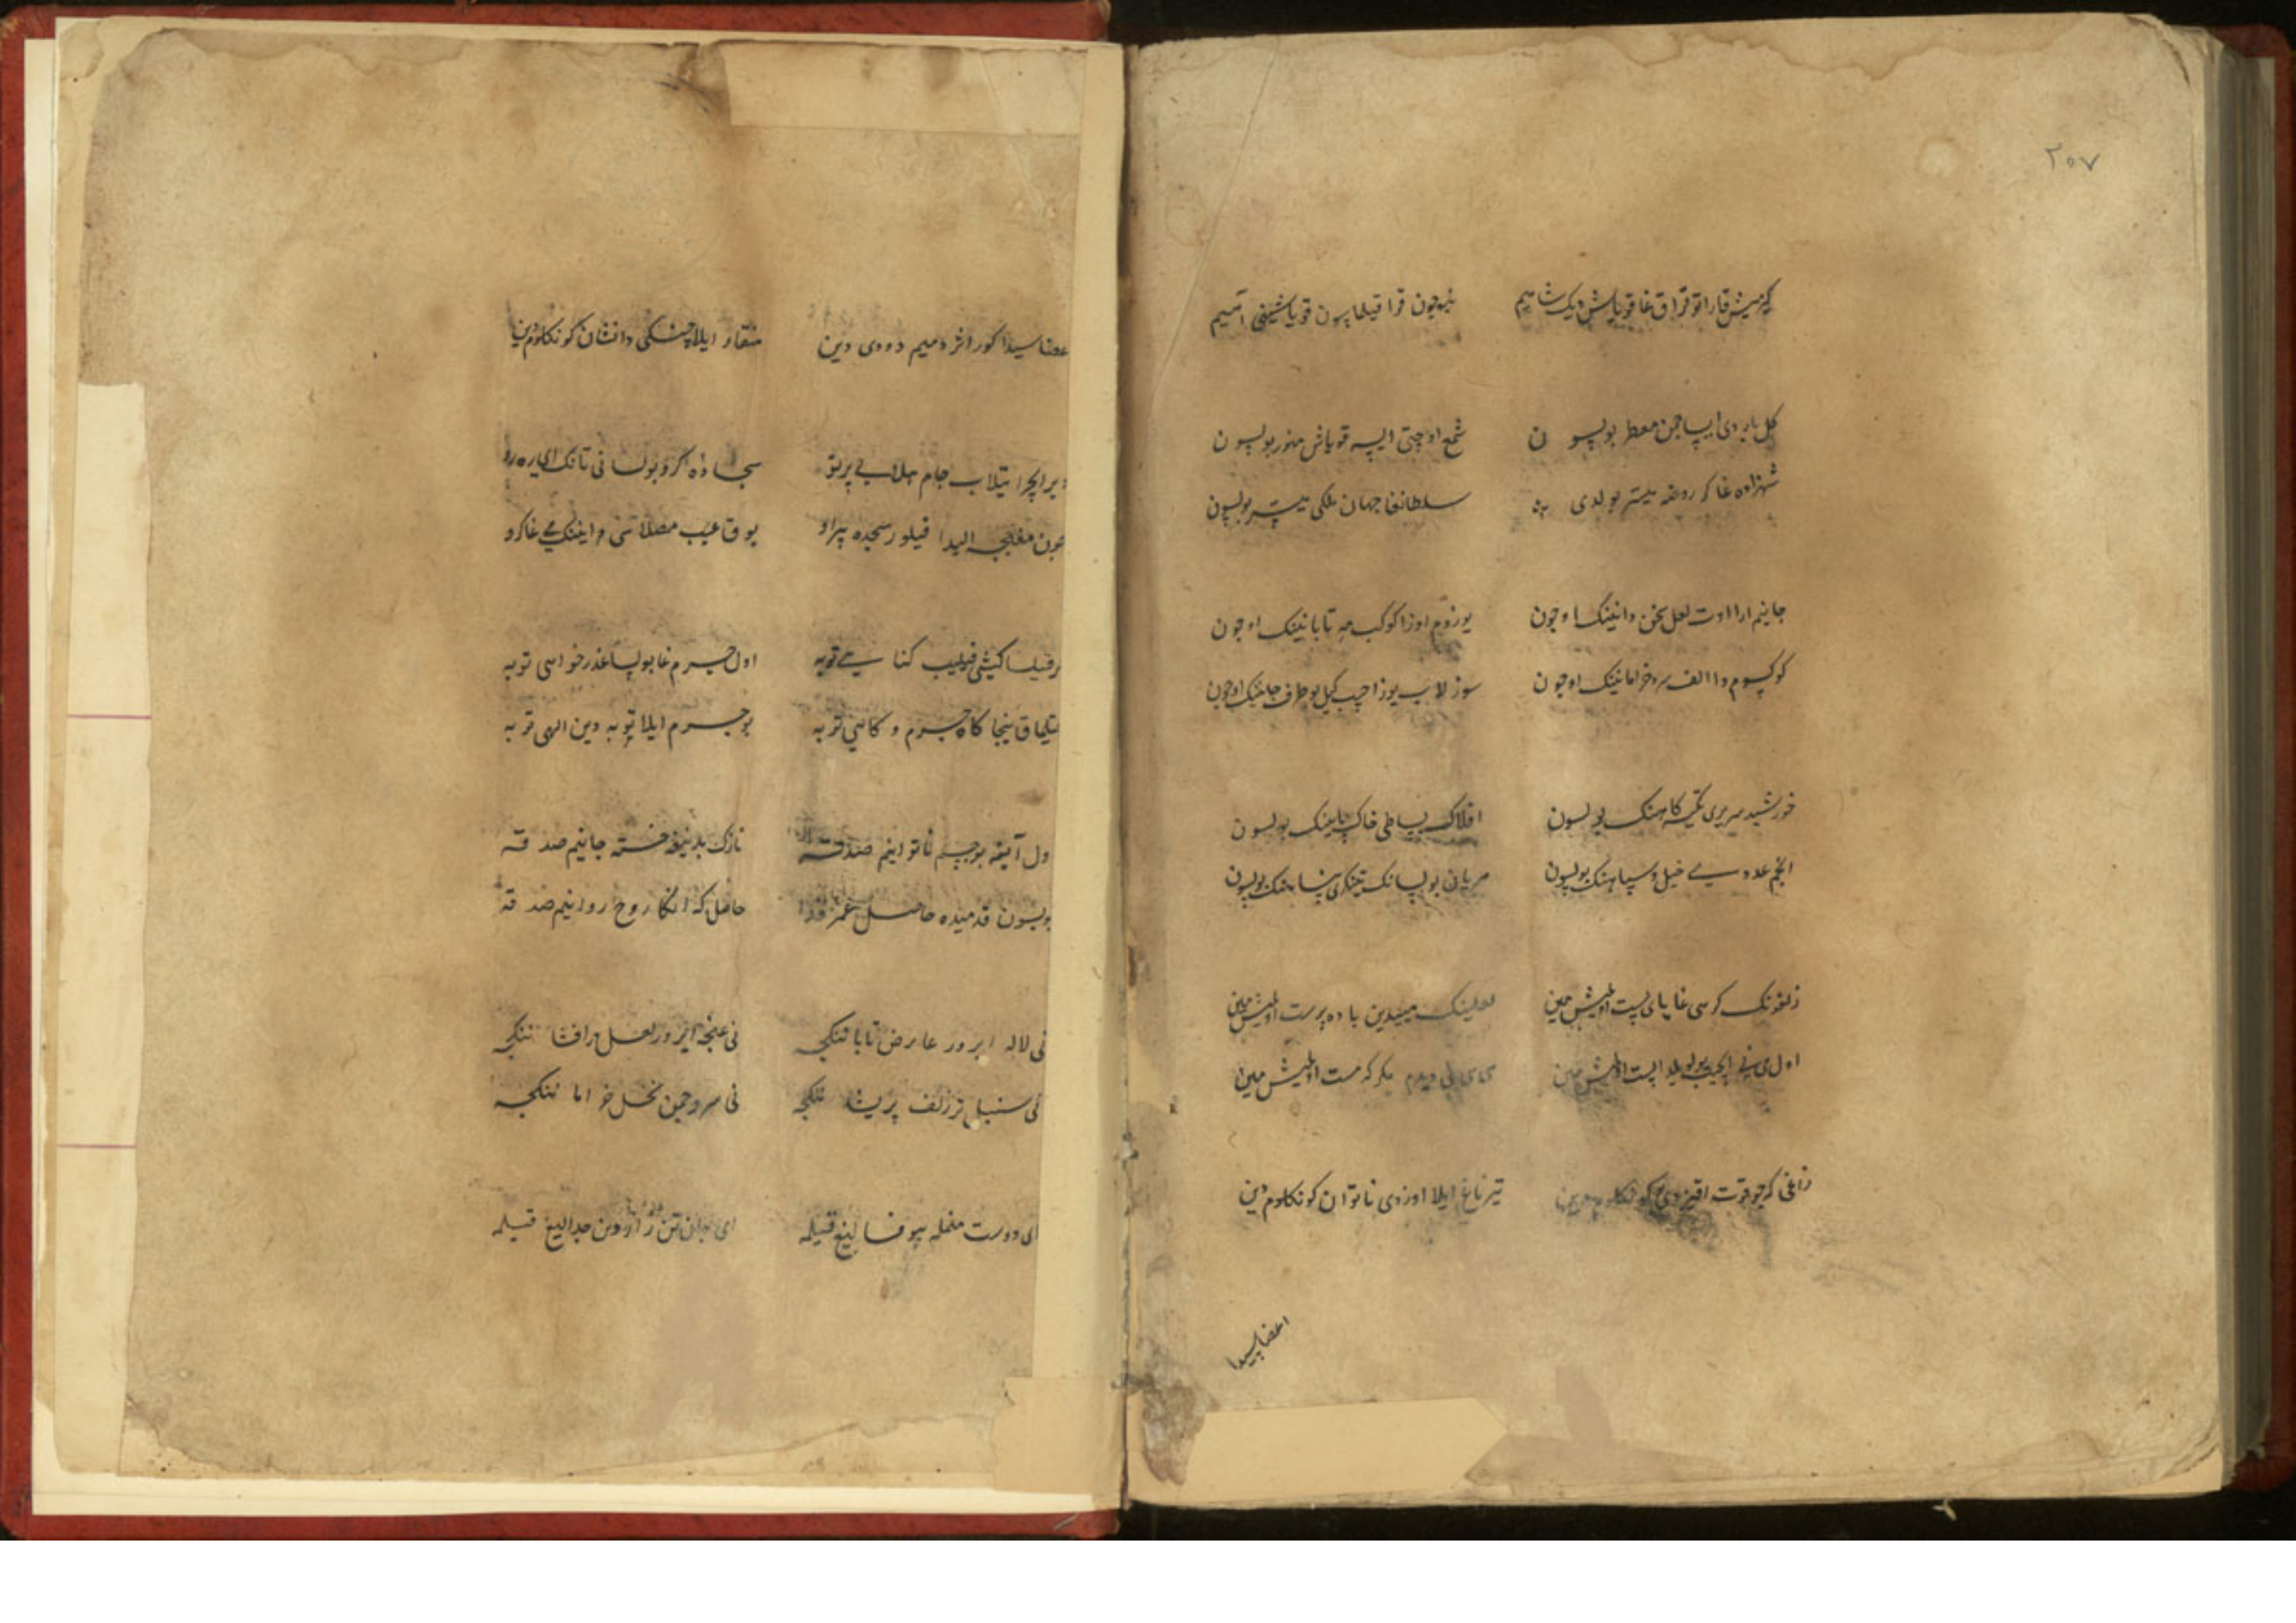 ۲۰۷
کیزمیش قارا توفراق غا قویاش دیک شاهیم
نیچون قرا قیلمایسون قویاشینی آهیم
گل باردی ایسا چمن معطر بولسون
شمع اوچتی ایسه قویاش منور بولسون
شهزاده غا کر روضه میسر بولدی
سلطانغا جهان ملکی میسر بولسون
جانیم ارا اوت لعل سخن دانینک اوچون
یوزوم اوزا کوکب مه تابانینک اوچون
کوکسوم دا الف سرو خرامانینک اوچون
سوزلاب یوز اچیب کیل بو طرف جانینک اوچون
خورشید سریری تکیه کاهینک بولسون
افلاک بساطی خاک راهینک بولسون
انجم عددی خیل و سپاهینک بولسون
هریان بولسانک تینکری پناهینک بولسون
زلفونک کرهی غا پای بست اولمیش مین
لعلینک مییدین باده پرست اولمیش مین
اول می نی ایچیب بویلا پست اولمیش مین
می نی دیدم مکر که مست اولمیش مین
زاغی که چو قوت اقیزدی کونکلوم دین
تیرناغ ایلا اوزدی ناتوان کونکلوم دین
اعضاسیدا
اعضاسیدا کور اثر دمیم دودی دین
منقار ایلا چشکی دانشان کونکلوم دین
دیر ایچرا تیلاب جام هلالی پرتو
سجاده کرو بولسا نی تانک ای رهرو
چون مغبچه الیدا قیلور سجده پیراو
یوق عیب مصلاسی دا اینک می غا کرو
هر قیلسا کیشی قیلیب کناهی توبه
اول جرم غا بولسا عذر خواهی توبه
قیلماق نیجا کاه جرم و کاهی توبه
بو جرم ایلا توبه دین الهی توبه
اول آیغه بو جسم ناتوانیم صدقه
نازک بدنیغه خسته جانیم صدقه
بولسون قدمیده حاصل عمر فدا
حاصل که انکا روح روانیم صدقه
نی لاله ایرور عارض تابانینکچه
نی غنچه ایرور لعل درافشانینکچه
نی سنبل تر زلف پریشانینکچه
نی سرو چمن نخل خرامانینکچه
ای دوست منمله بیوفالیغ قیلمه
ای جان تن زاردین جدالیغ قیلمه